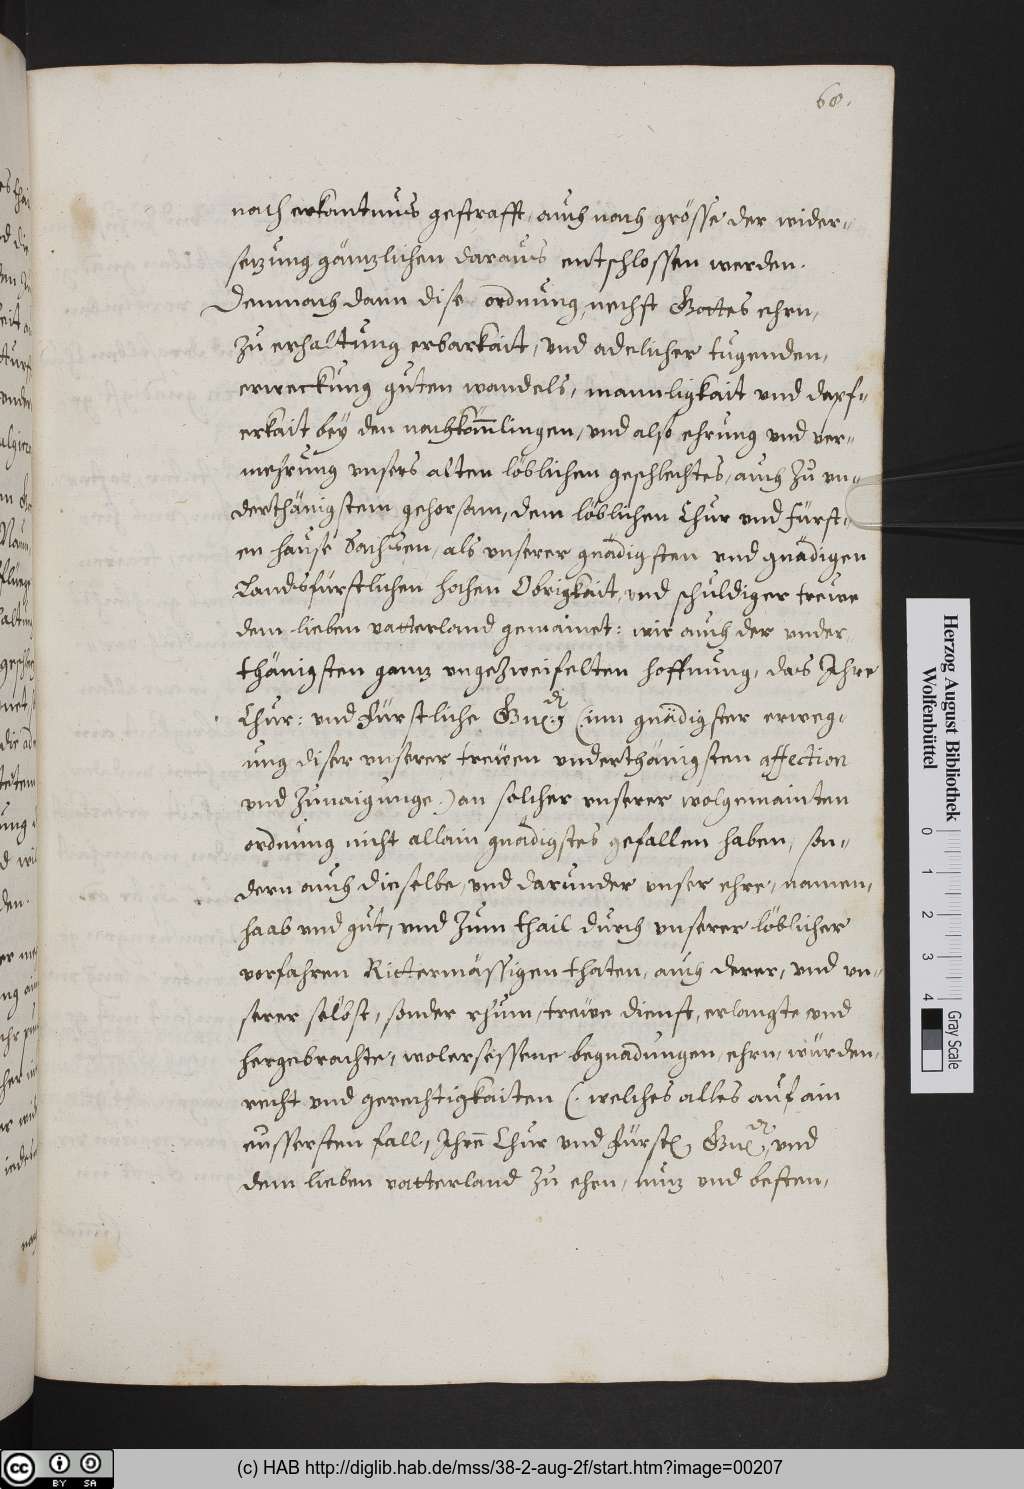 68.
nach erkantnus gestrafft, auch nach grösse der wider-
setzung gäntzlichen daraus entschlossen werden.
Demnach dann dise ordnung, nechst Gottes ehrn,
zu erhaltung erbarkait, und adelicher tugenden,
erweckung guten wandels, mannligkait und dapf-
erkait bey den nachkom̄lingen, und also ehrung und ver-
mehrung unsers alten löblichen geschlechtes, auch zu un-
derthänigstem gehorsam, dem löblichen Chur und fürst-
en hause Sachssen, als unserer gnädigsten und gnädigen
Landsfürstlichen hohen Obrigkait, und schuldiger treuwe
dem lieben vatterland gemainet: wir auch der under
thänigsten gantz ungezweifelten hoffnung, das Ihre
Chur: und Fürstliche Gn: (inn gnädigster erweg-
ung diser unserer treuwen underthänigsten affection
und zunaigunge.) an solcher unserer wolgemainten
ordnung nicht allain gnädigstes gefallen haben, son-
dern auch dieselbe, und darunder unser ehre, namen,
haab und gut, und zum thail durch unserer löblicher
vorfahren Rittermässigen thaten, auch derer, und un-
serer selbst, sonder rhum, treuwe dienst, erlangte und
hergebrachte, wolersessene begnadungen, ehrn, würden,
recht und gerechtigkaiten (. welches alles auf ain
eussersten fall, Ihrn̄ Chur und Fürst. Gn. und
dem lieben vatterland zu ehrn, nutz und besten,
Herzog August Bibliothek
Wolfenbüttel
0 1 2 3 4
Gray Scale
cc BY SA
(c) HAB http://diglib.hab.de/mss/38-2-aug-2f/start.htm?image=00207